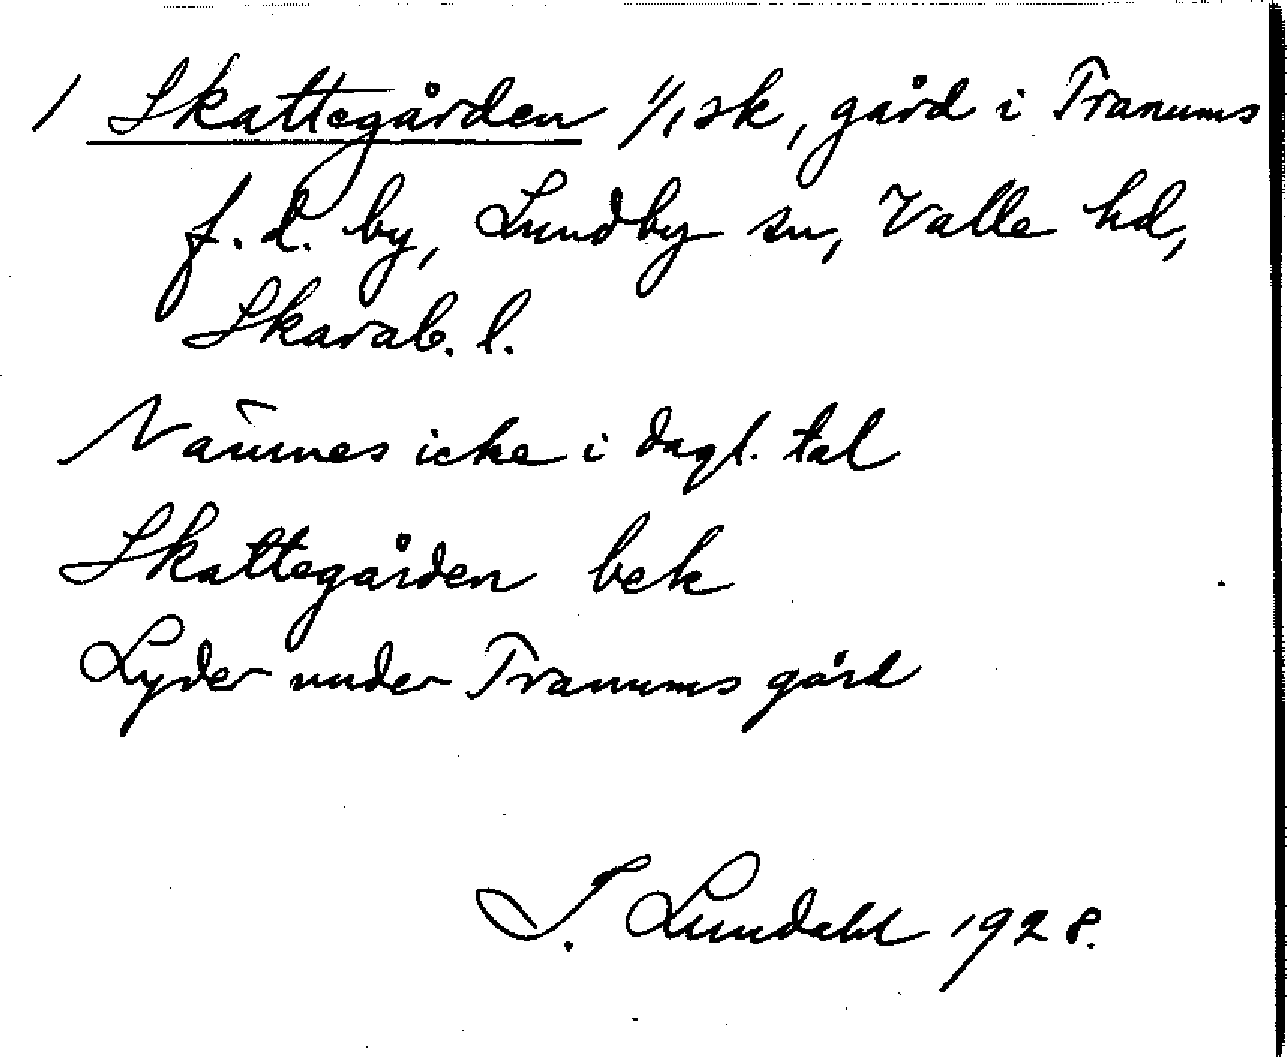 / Skattegården 1/1 sk, gård i Tranums
f. d. by, Lundby sn, Valle hd,
Skarab. l.
Nämnes icke i dagl. tal
Skattegården bek
Lyder under Tranums gård
I. Lundahl 1928.